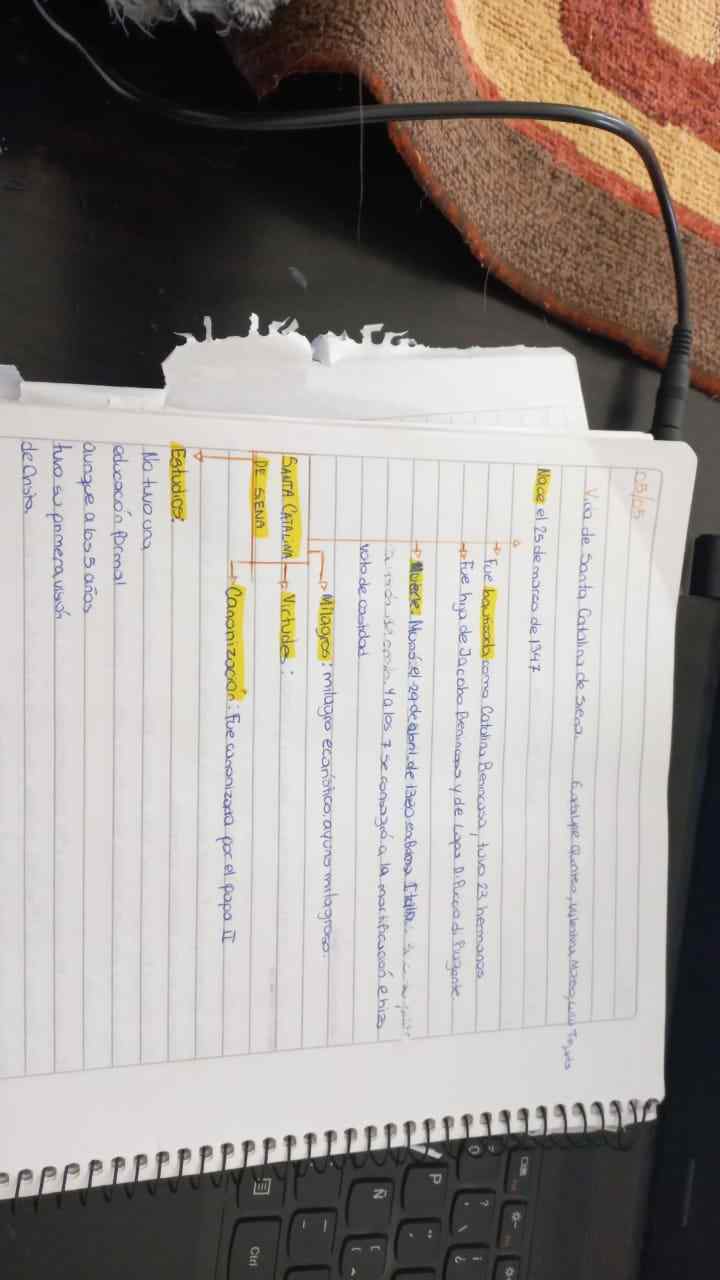 05/05
Vida de Santa Catalina de Siena. Guadalupe Quintero, Valentina
Nace el 25 de marzo de 1347
Fue bautizada como Catalina Benincasa, tuvo 23 hermanos
Fue hija de Jacobo Benincasa y de Lapa Di Puccio di Piagente
Muerte: Murió el 29 de abril de 1380 en Roma Italia.
y a los 7 se consagró a la mortificación e hizo
voto de castidad
Milagros: milagro ecarístico, ayuno milagroso.
SANTA CATALINA
DE SIENA
Virtudes:
Canonización: Fue canonizada por el papa II
Estudios:
No tuvo una
educación formal
aunque a los 5 años
tuvo su primera visión
de Cristo.
P
Ñ
Ctrl